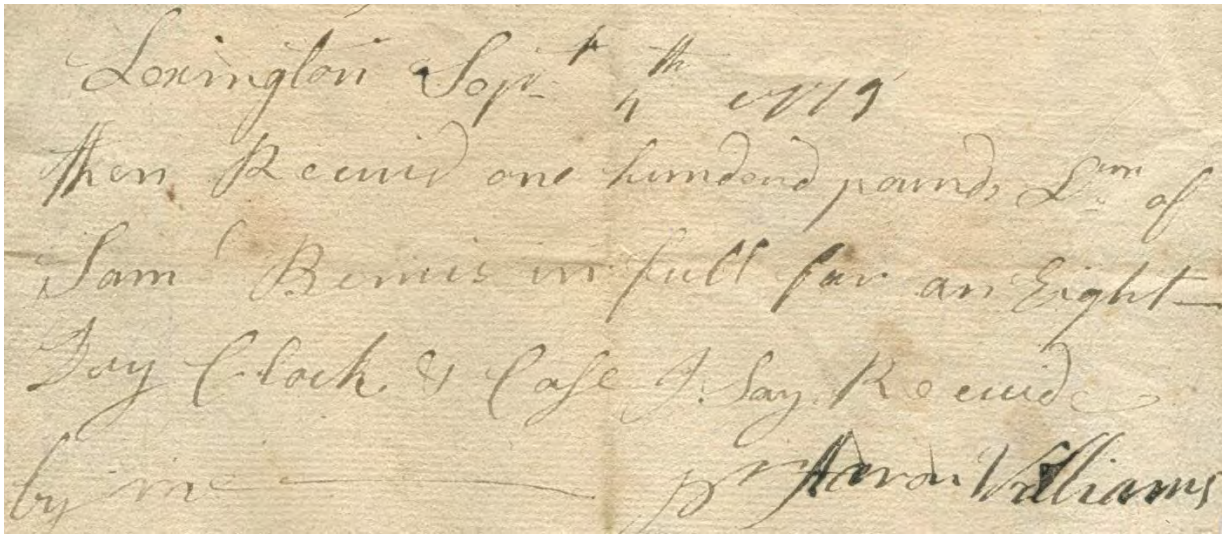 Lexington Sept 4th 1779
then Receivd one hundend pounds Lm of
Saml Bemis in full for an Eight
Day Clock & Case I Say Receivd
by me pr Aaron Williams